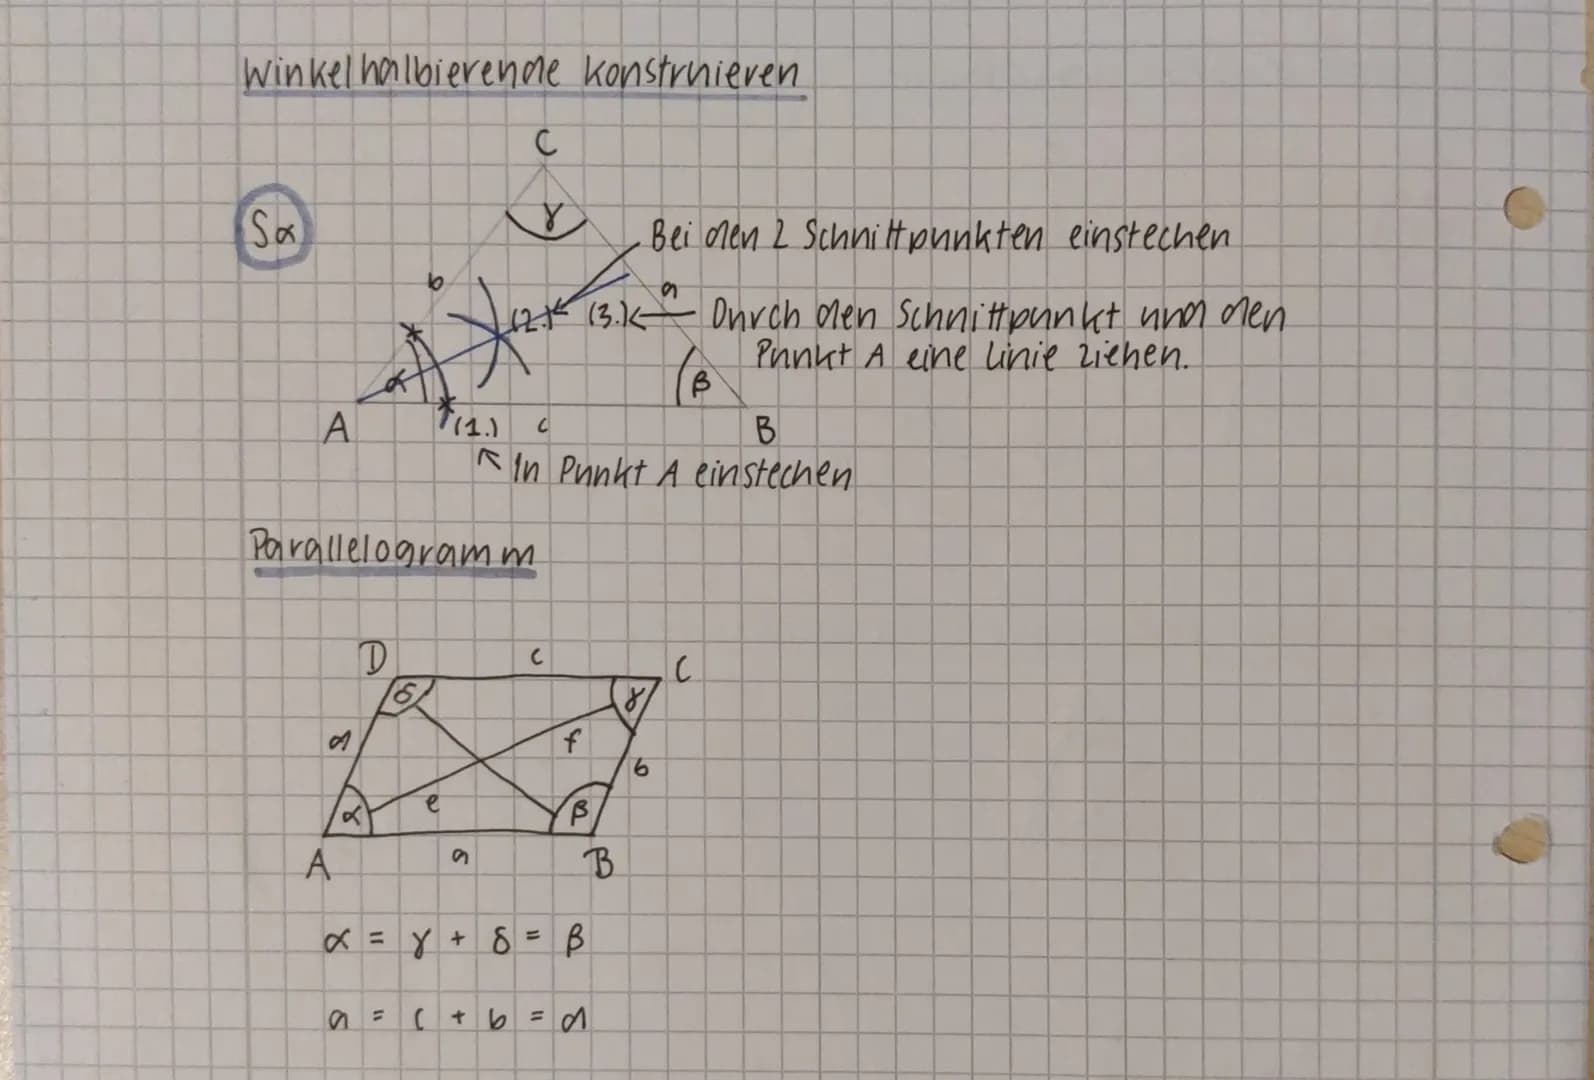 Winkelhalbierende konstruieren
C
Sα
γ
Bei den 2 Schnittpunkten einstechen
b
a
(2.) (3.) Durch den Schnittpunkt und den
Punkt A eine Linie ziehen.
α
β
A (1.) c B
In Punkt A einstechen
Parallelogramm
D c C
δ γ
d f
b
e
α β
A a B
α = γ + δ = β
a = c + b = d